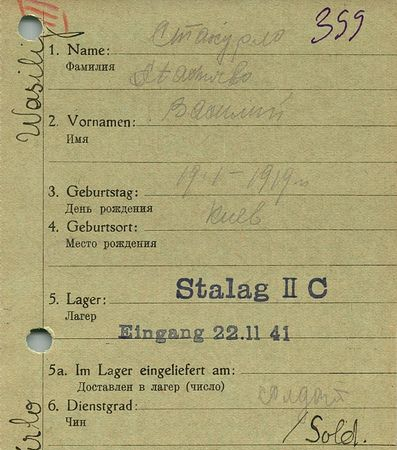 399
Wasilij
1. Name:
Фамилия
2. Vornamen: Василий
Имя
19·1-1919г
3. Geburtstag:
День рождения
Киев
4. Geburtsort:
Место рождения
5. Lager: Stalag II C
Лагер
Eingang 22.11 41
5a. Im Lager eingeliefert am:
Доставлен в лагер (число)
солдат
6. Dienstgrad:
Чин
/Sold.